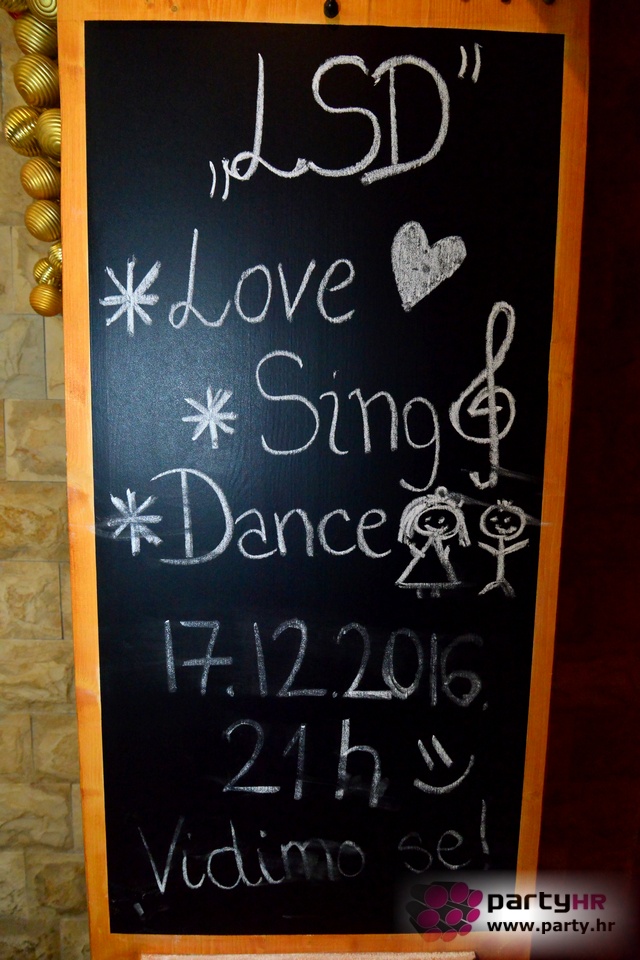 „LSD”
* Love
* Sing
* Dance
17.12.2016.
21h
Vidimo se!
partyHR
www.party.hr